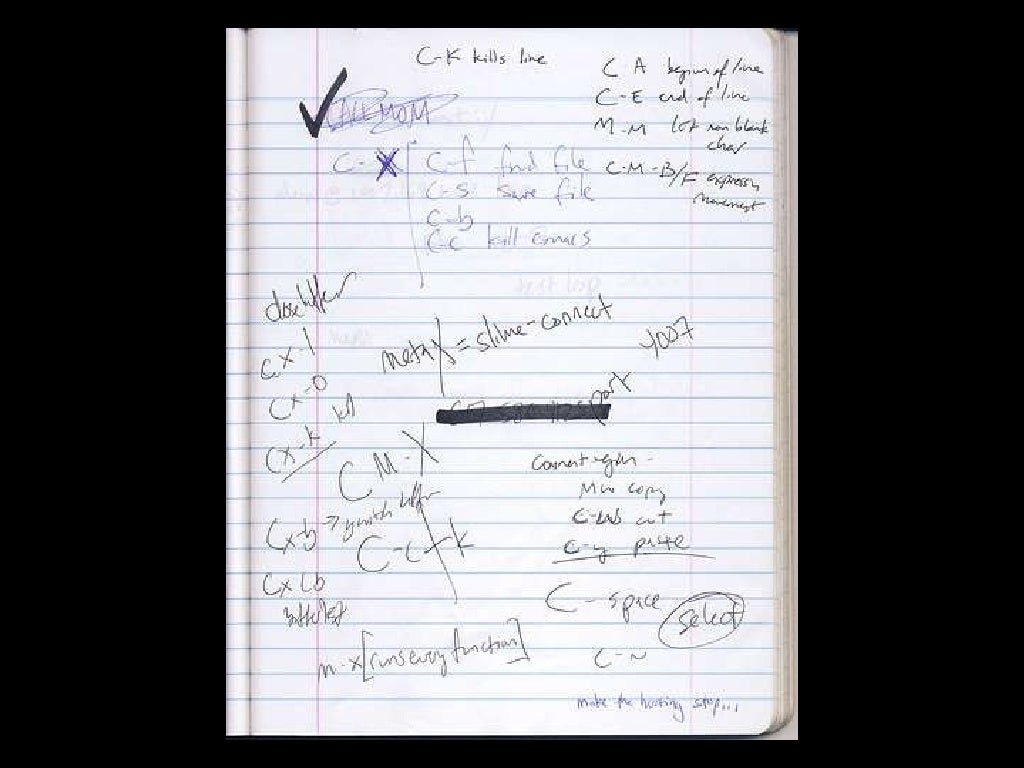 C-K kills line
C A begin of line
C-E end of line
M-M 1st non blank
char
C-M-B/F expression
movement
CALL MOM
C-X C-f find file
C-s save file
C-b
C-c kill emacs
close buffer
Cx-1
Cx-0
Cx-k kill
Cx-b → switch buffer
Cx Cb
buffer list
meta X = slime-connect
4007
port
C M-X
C-c + k
comment-region -
M-w copy
C-w cut
C-y paste
C-space select
C-~
m-x [runs every function]
make the hurting stop...